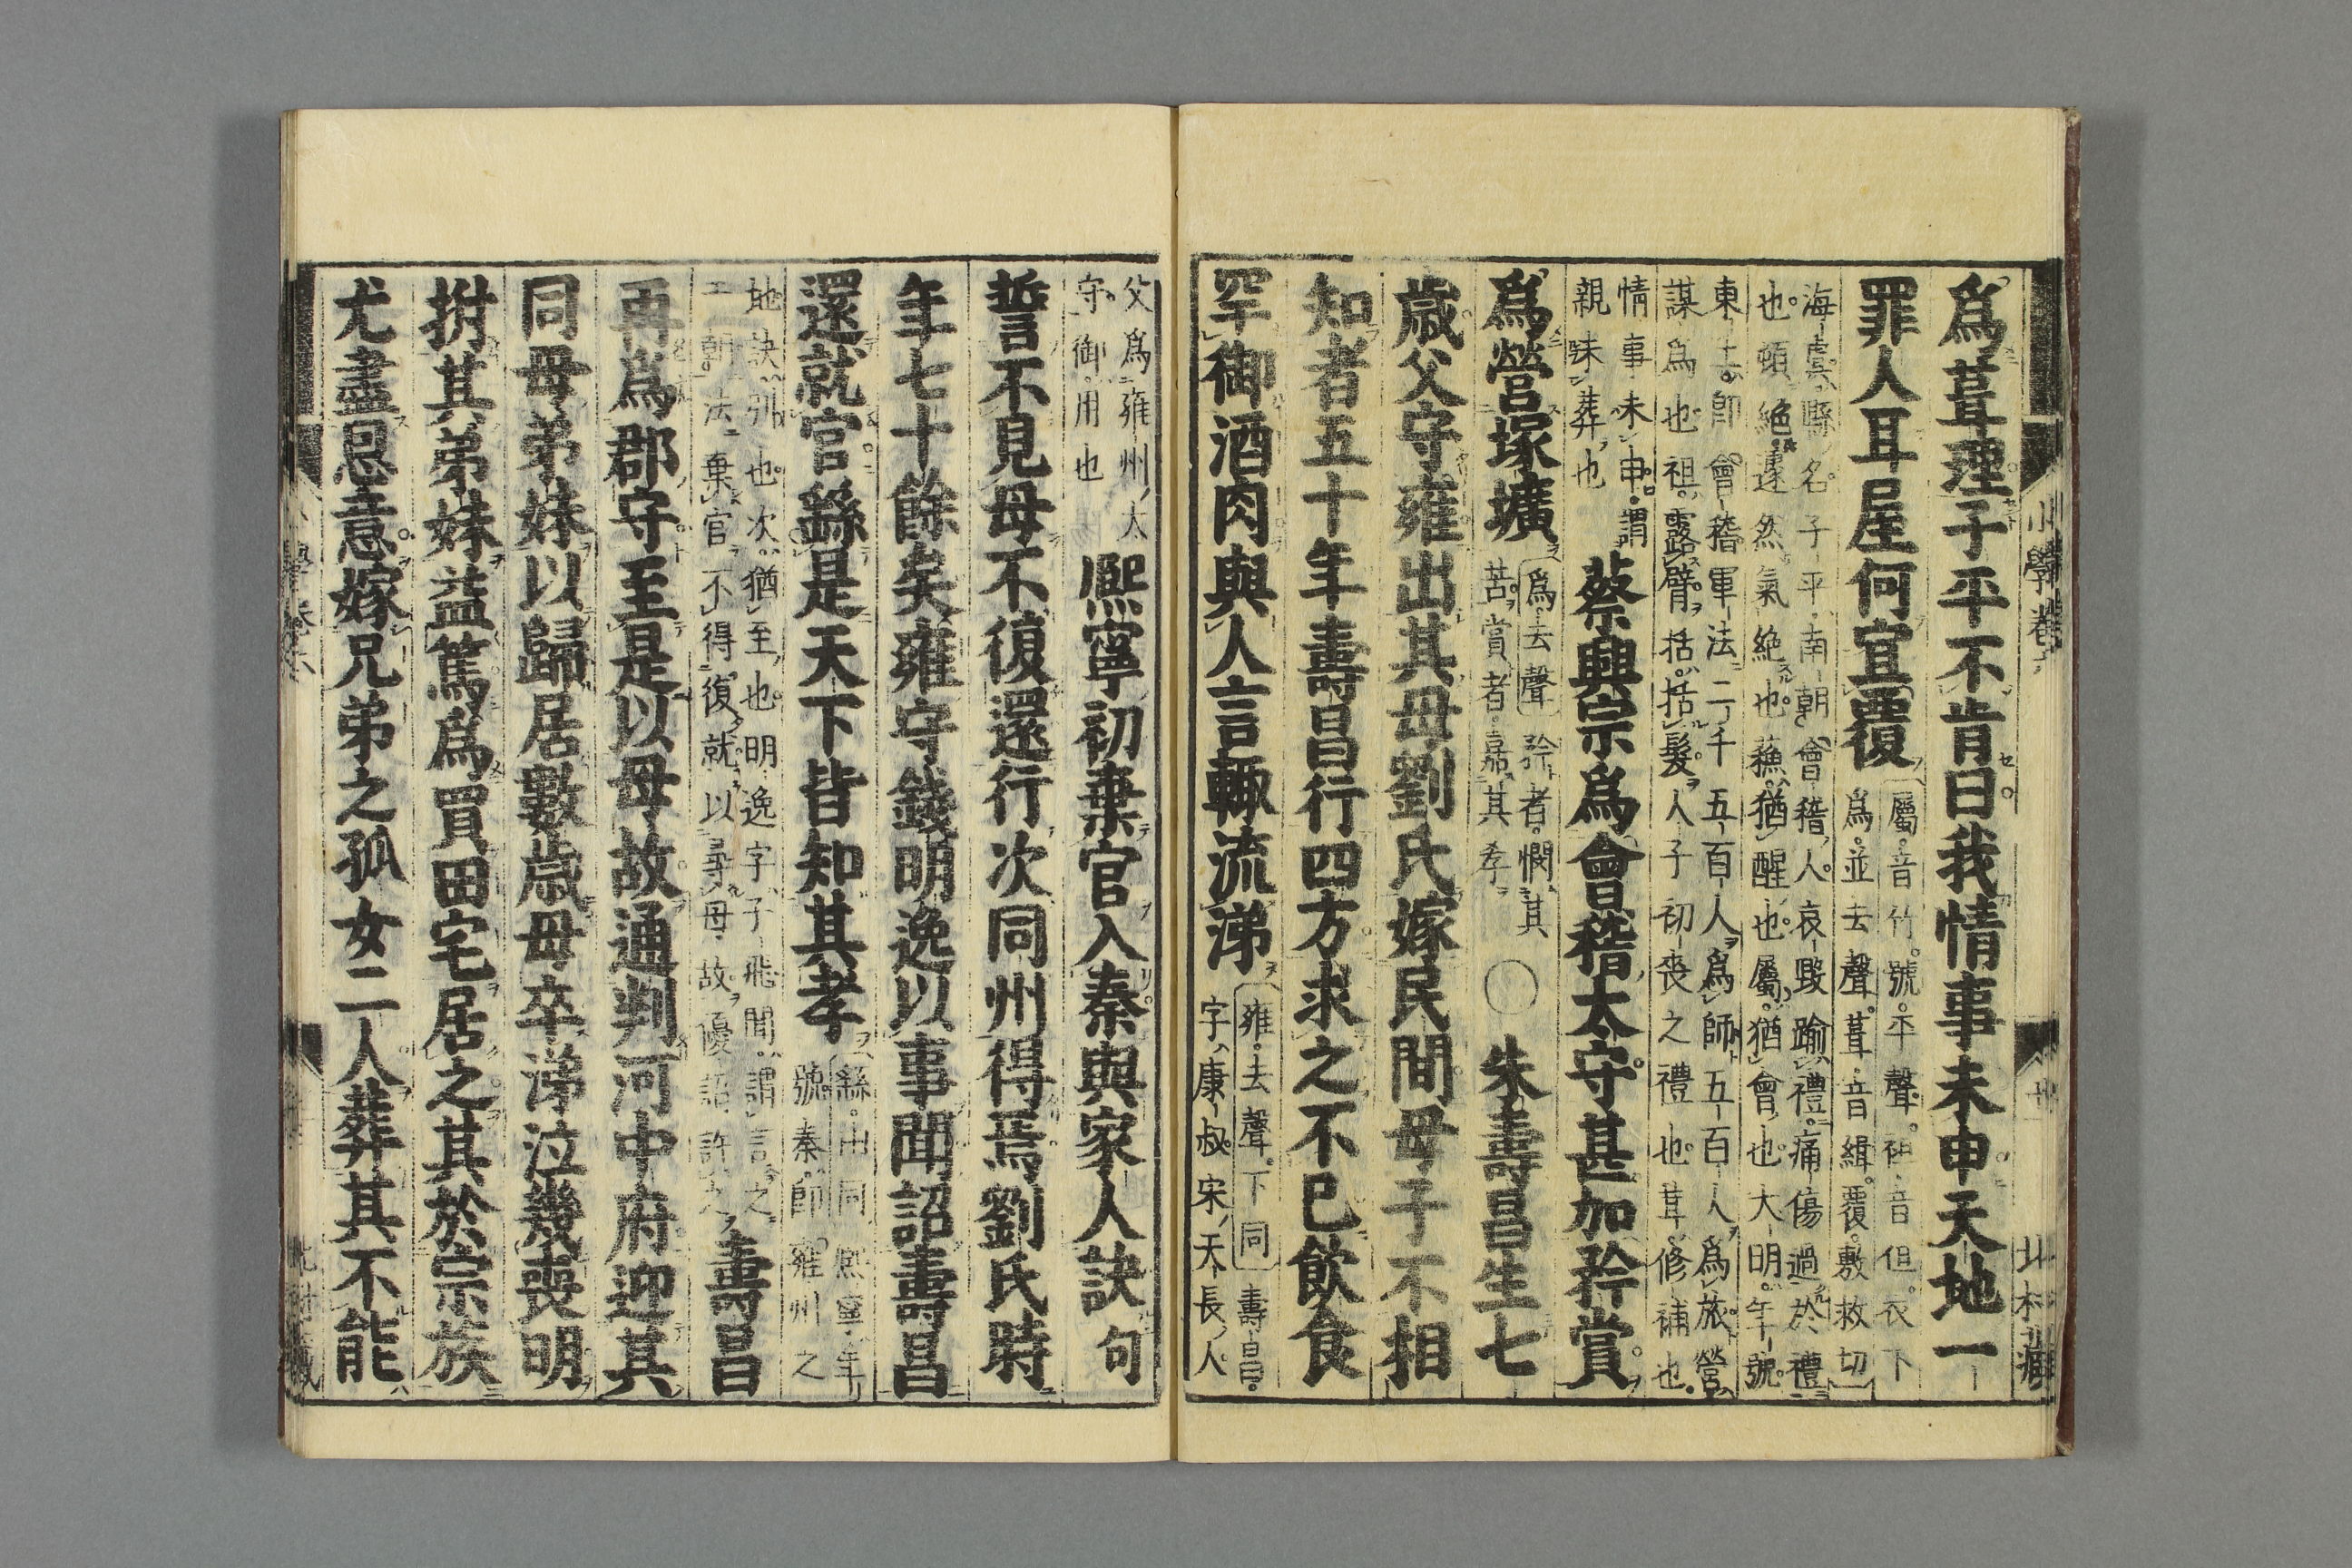 爲葺理子平不肯曰我情事未申天地一
罪人耳屋何宜覆
屬音竹號平聲袒音但衣下
爲並去聲葺音緝覆敷救切
海虞縣名子平南朝會稽人哀毀踰禮痛傷過於禮
也頓絕遽然氣絕也蘓猶醒也屬猶會也大明年號
東土卽會稽軍法二千五百人爲師五百人爲旅營
謀爲也袒露臂括括髮人子初喪之禮也葺修補也
情事未申謂
親味葬也
蔡興宗爲會稽太守甚加矜賞
爲營塚壙
爲去聲矜者憫其
苦賞者嘉其孝
○朱壽昌生七
歲父守雍出其母劉氏嫁民間母子不相
知者五十年壽昌行四方求之不已飮食
罕御酒肉與人言輙流涕
雍去聲下同壽昌
字康叔宋天長人
小學卷
北村藏
父爲雍州太
守御用也
熈寧初棄官入秦與家人訣句
誓不見母不復還行次同州得焉劉氏時
年七十餘矣雍守錢明逸以事聞詔壽昌
還就官繇是天下皆知其孝
繇由同熈寧年
號秦卽雍州之
地訣別也次猶至也明逸字子飛聞謂言之
朝法棄官不得復就以尋母故優詔許之
壽昌
再爲郡守至是以母故通判河中府迎其
同母弟妹以歸居數歲母卒涕泣幾喪明
拊其弟妹益篤爲買田宅居之其於宗族
尤盡恩意嫁兄弟之孤女二人葬其不能